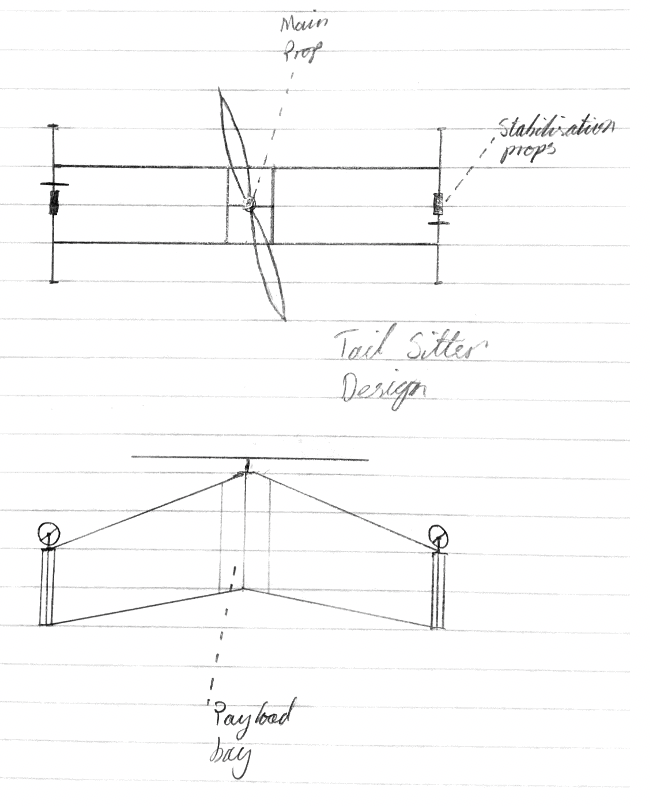 Main
Prop
Stabilisation
props
Tail Sitter
Design
Payload
bay